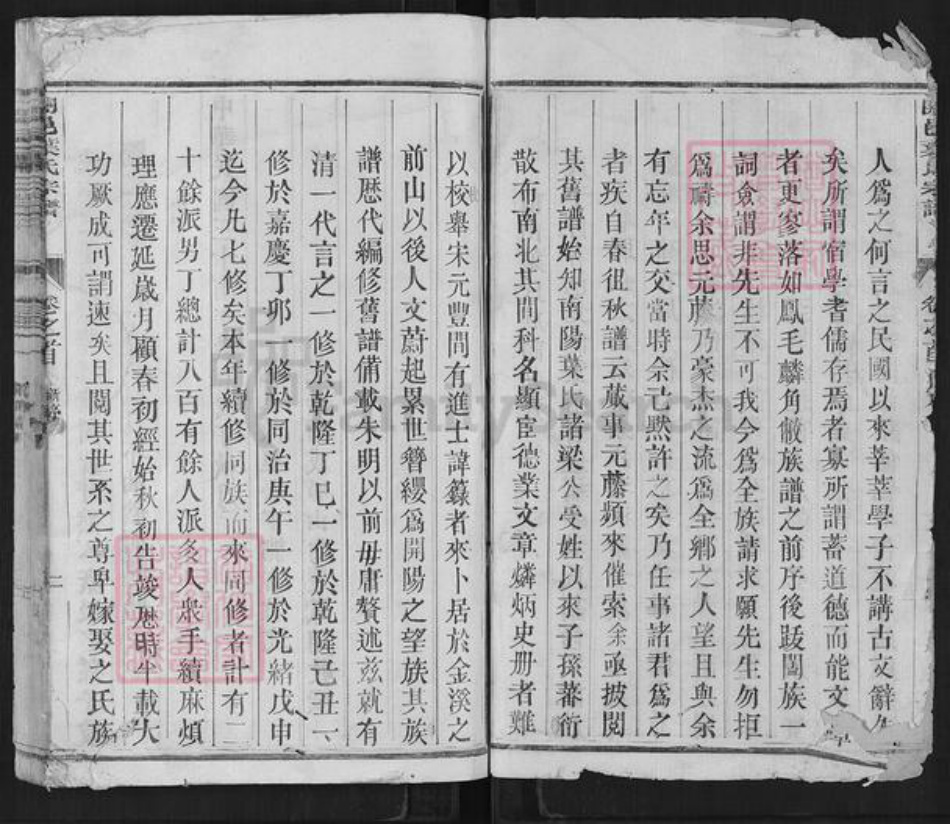 人爲之何言之民國以來莘莘學子不講古文辭久
矣所謂宿學者儒存焉者寡所謂蓄道德而能文章
者更寥落如鳳毛麟角敝族譜之前序後跋闔族一
詞僉謂非先生不可我今爲全族請求願先生勿拒
爲禱余思元藤乃豪杰之流爲全鄉之人望且與余
有忘年之交當時余已默許之矣乃任事諸君爲之
者疾自春徂秋譜云蕆事元藤頻來催索余亟披閱
其舊譜始知南陽葉氏諸梁公受姓以來子孫蕃衍
散布南北其間科名顯宦德業文章燐炳史册者難
以校舉宋元豐間有進士諱籙者來卜居於金溪之
前山以後人文蔚起累世簪纓爲開陽之望族其族
譜歷代編修舊譜備載朱明以前毋庸贅述茲就有
清一代言之一修於乾隆丁巳一修於乾隆己丑一
修於嘉慶丁卯一修於同治庚午一修於光緒戊申
迄今凡七修矣本年續修同族而來同修者計有二
十餘派男丁總計八百有餘人派多人衆手續麻煩
理應遷延歲月顧春初經始秋初告竣歷時半載大
功厥成可謂速矣且閱其世系之尊卑嫁娶之氏族
邑葉氏宗譜
卷之首
二
FamilySearch